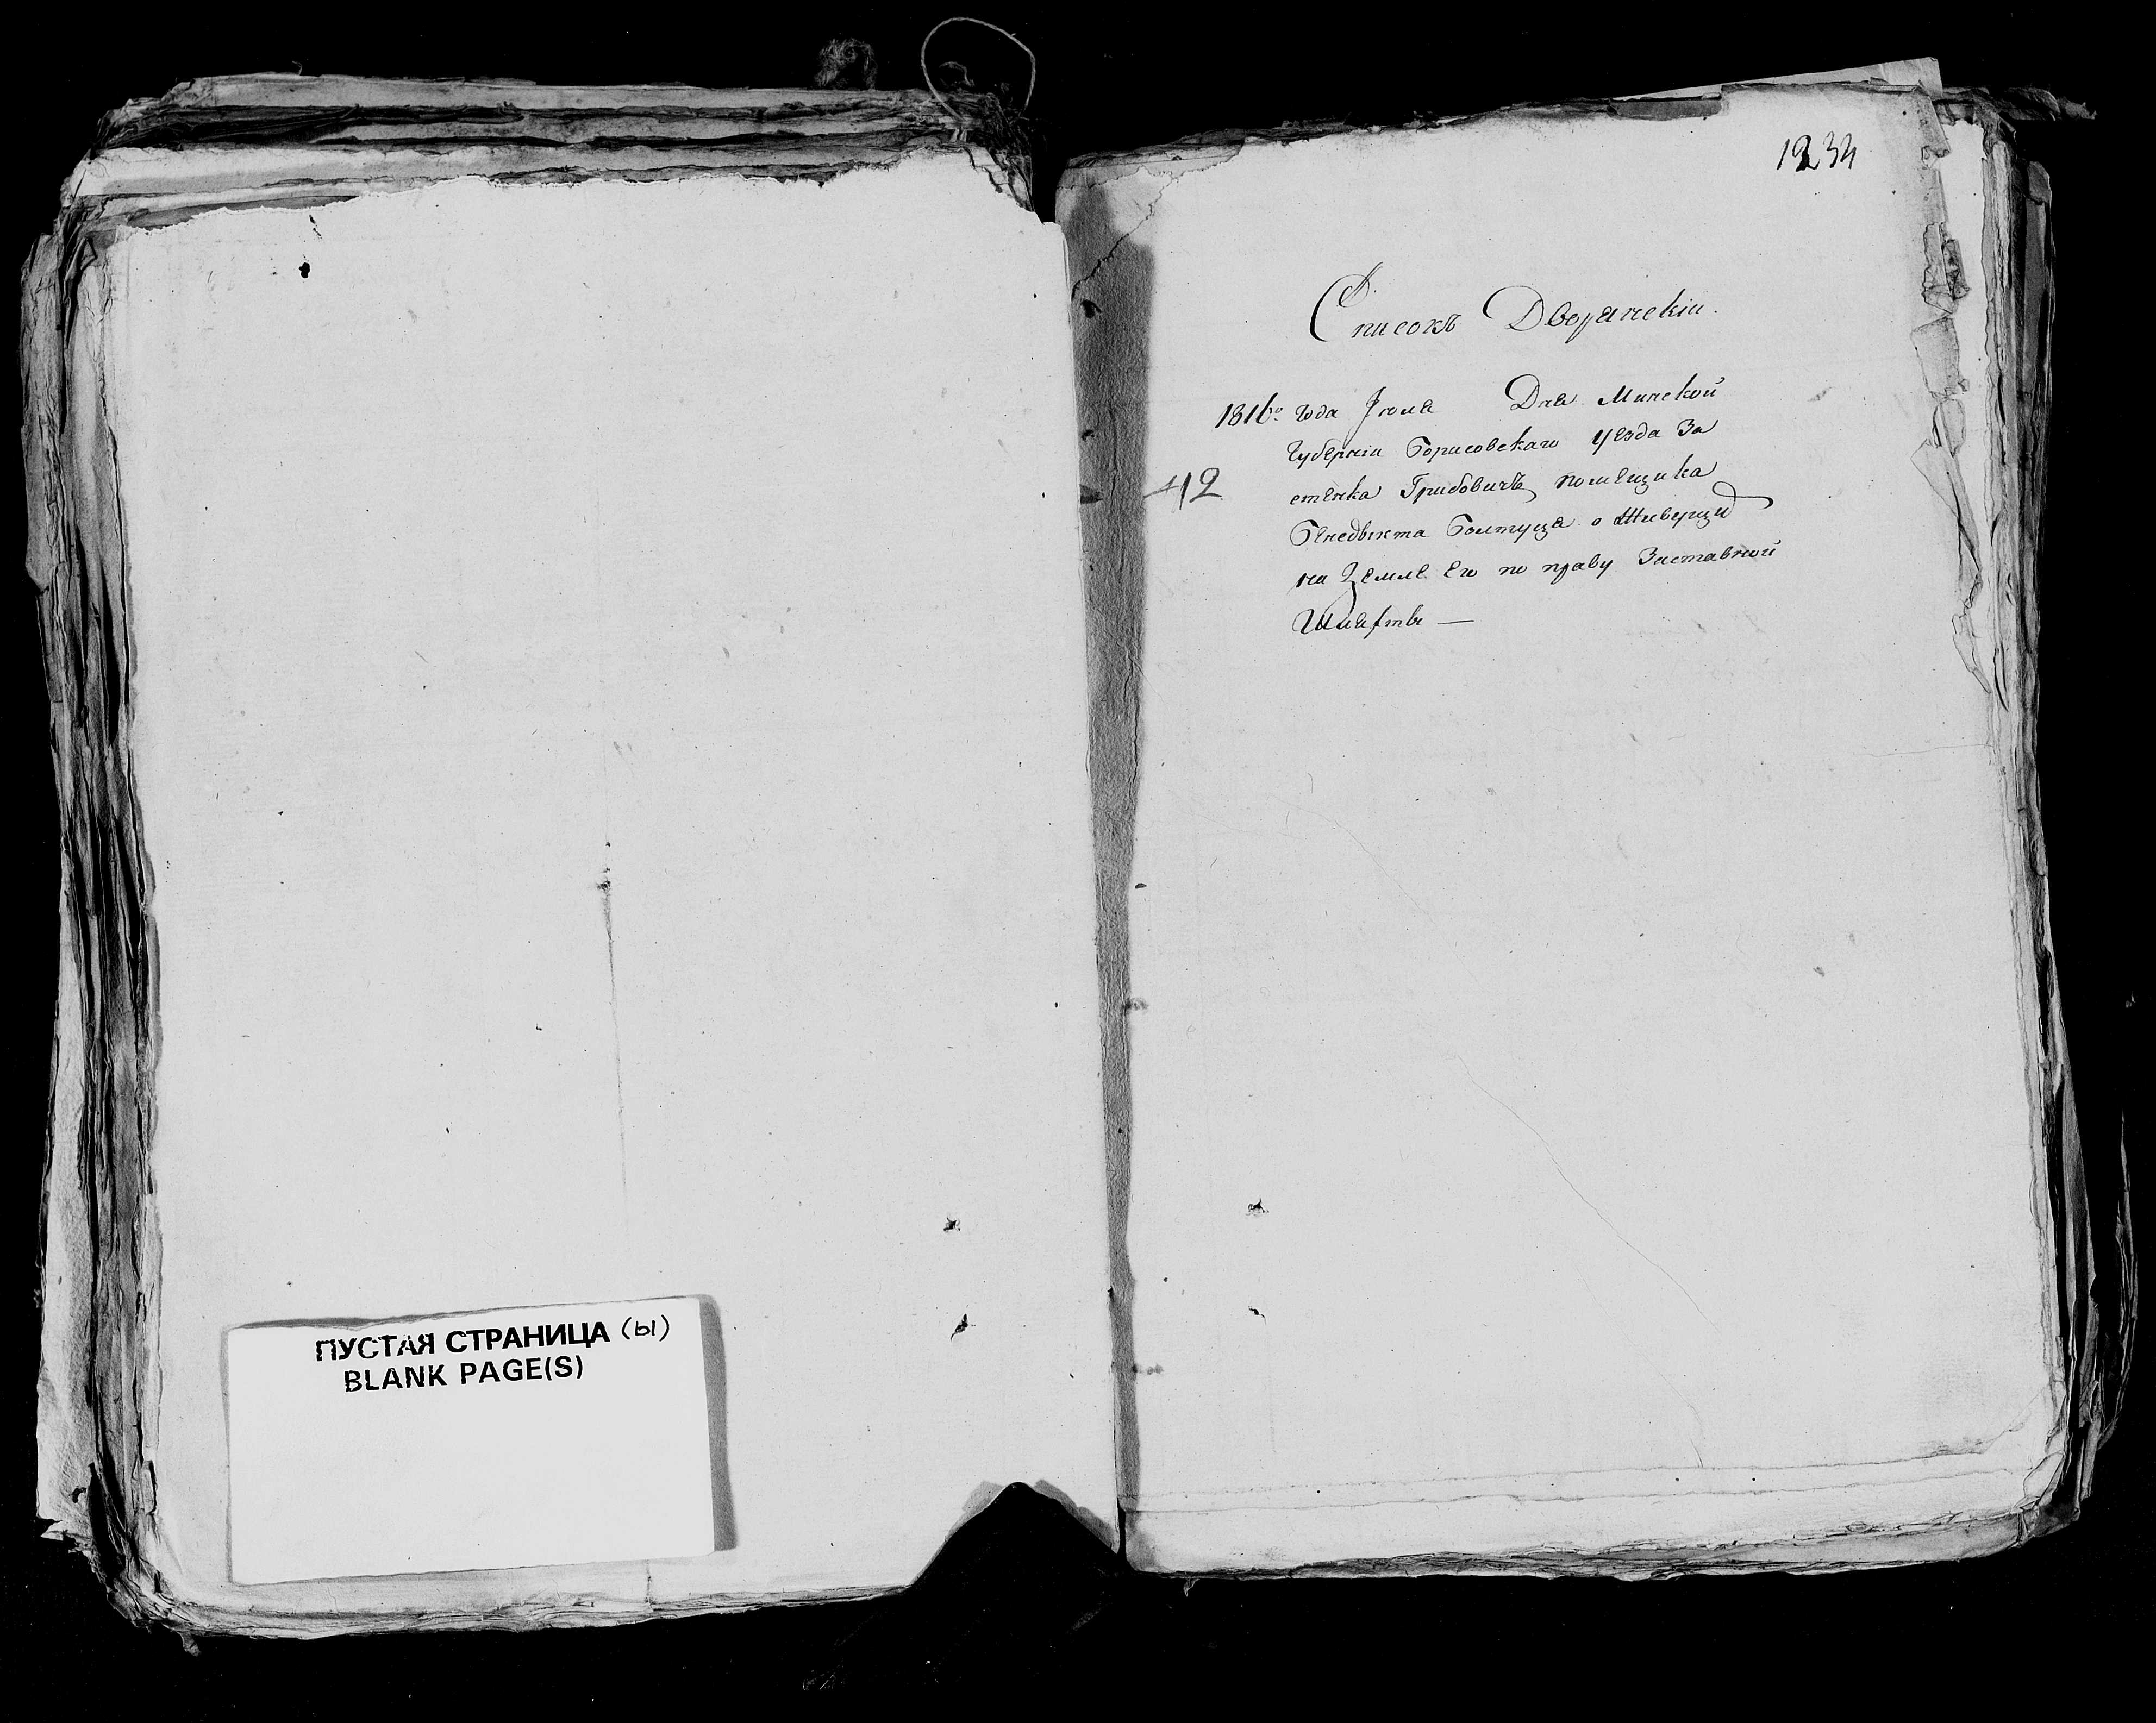 ПУСТАЯ СТРАНИЦА (ы)
BLANK PAGE(S)
1234
Списокъ Дворянскіи.
1816го года Июля Дня Минской
Губерніи Борисовскаго уезда За
412
стенка Грибовичъ помещика
Бенедыкта Болтуця о
на Земле его по праву Заставной
Шляхты —